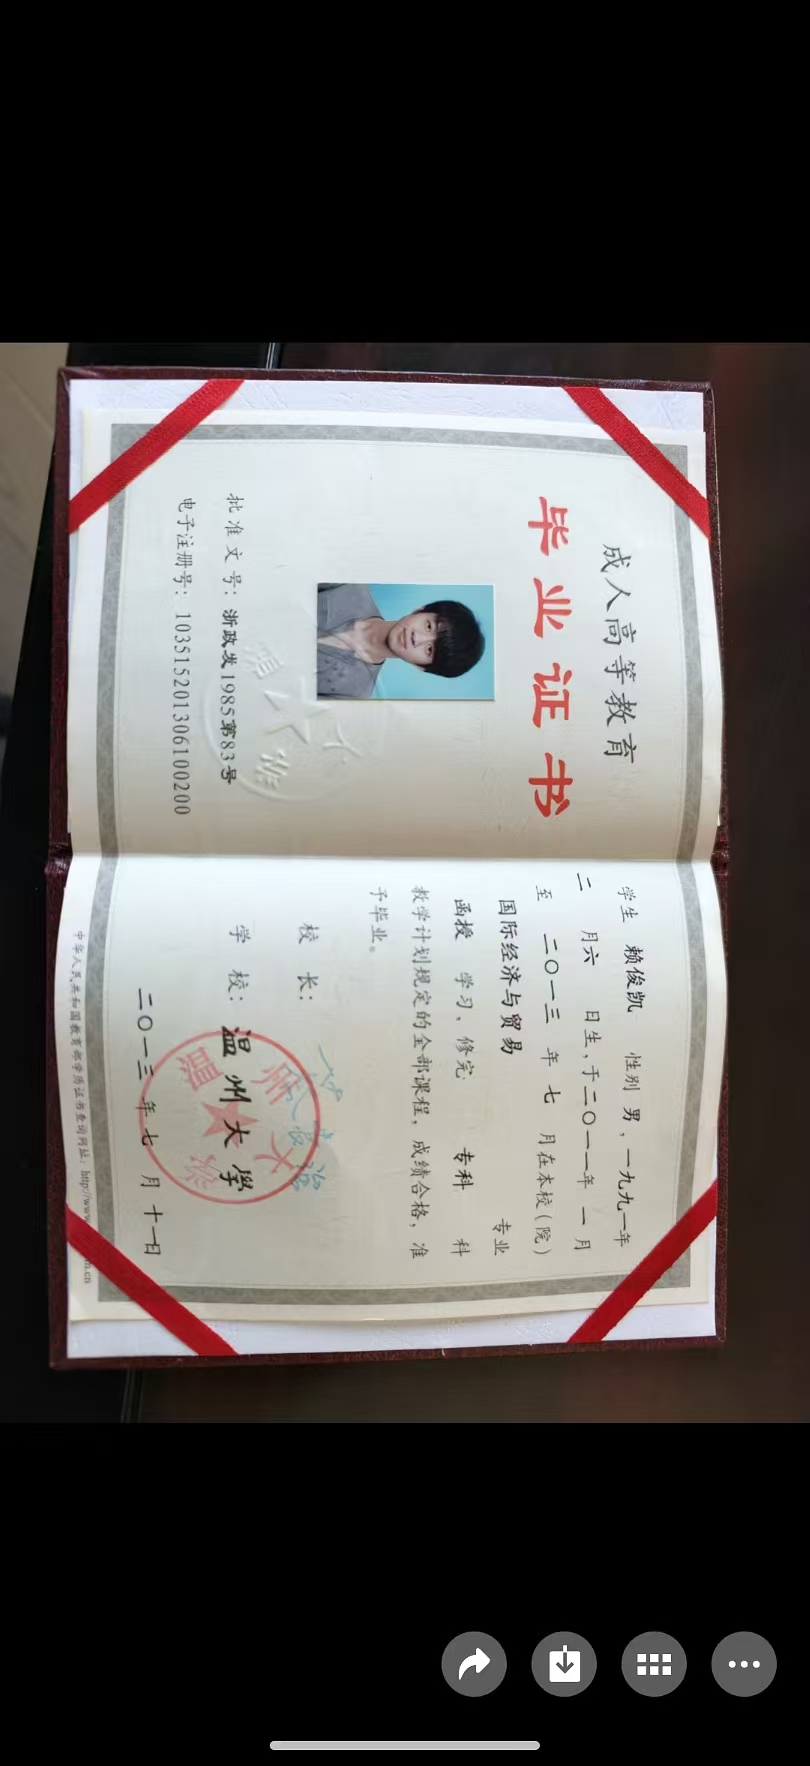 成人高等教育
毕业证书
批准文号：浙政发1985第83号
电子注册号：103515201306100200
学生 赖俊凯 性别 男，一九九一年
二 月六 日生，于二〇一一年 一 月
至 二〇一三 年 七 月在本校（院）
国际经济与贸易 专业
函授 学习，修完 专科 科
教学计划规定的全部课程，成绩合格，准
予毕业。
校 长：
学 校：温州大学
二〇一三 年 七 月 十一日
中华人民共和国教育部学历证书查询网址：http://www.